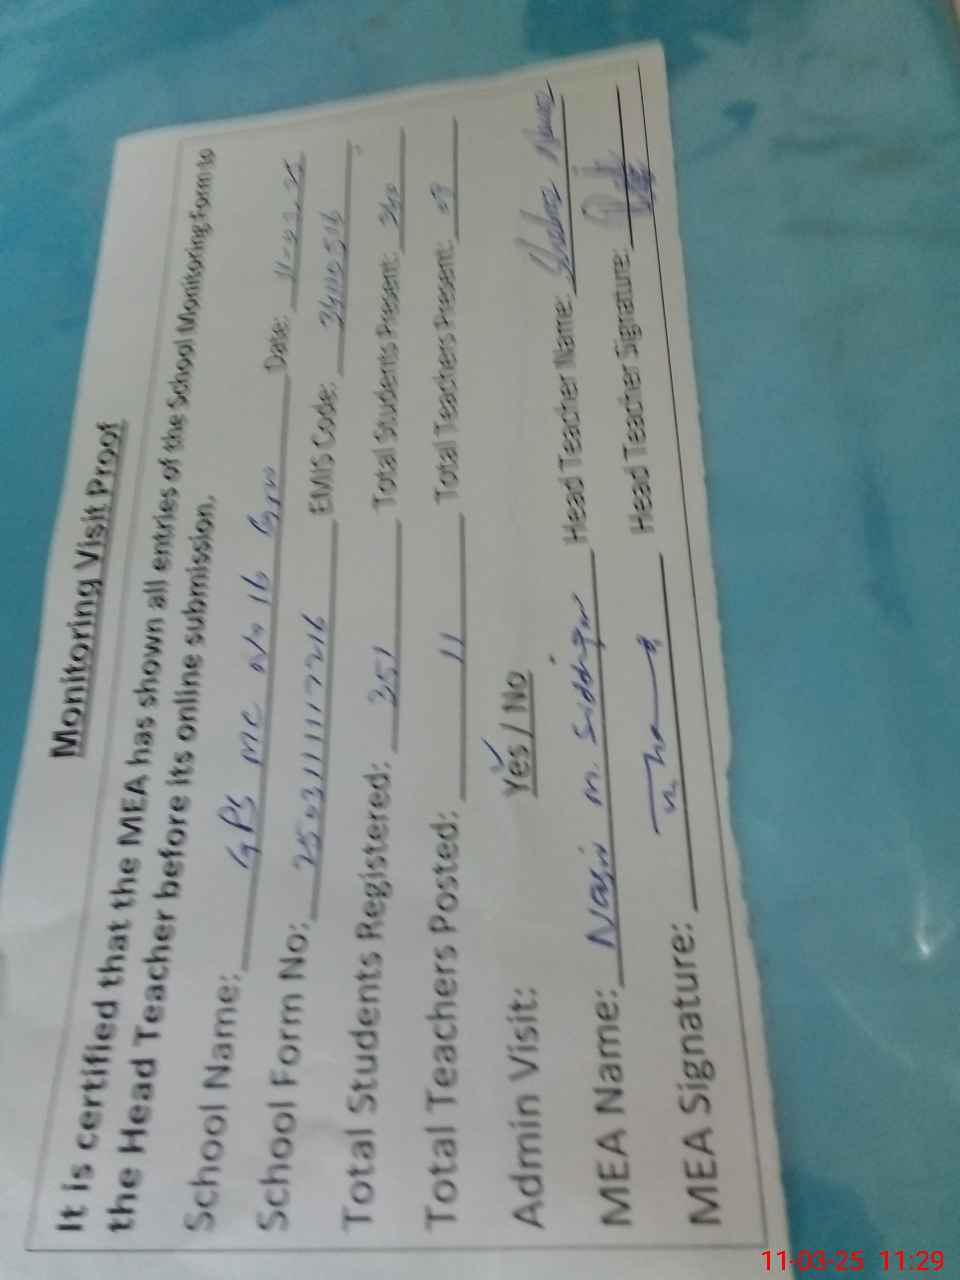 Monitoring Visit Proof
It is certified that the MEA has shown all entries of the School Monitoring Form to
the Head Teacher before its online submission.
School Name: GPS MC No 16 Date: 11-03-25
School Form No: EMIS Code:
Total Students Registered: 351 Total Students Present:
Total Teachers Posted: 11 Total Teachers Present: 09
Admin Visit: Yes / No
MEA Name: M. Head Teacher Name:
MEA Signature: Head Teacher Signature:
11-03-25 11:29